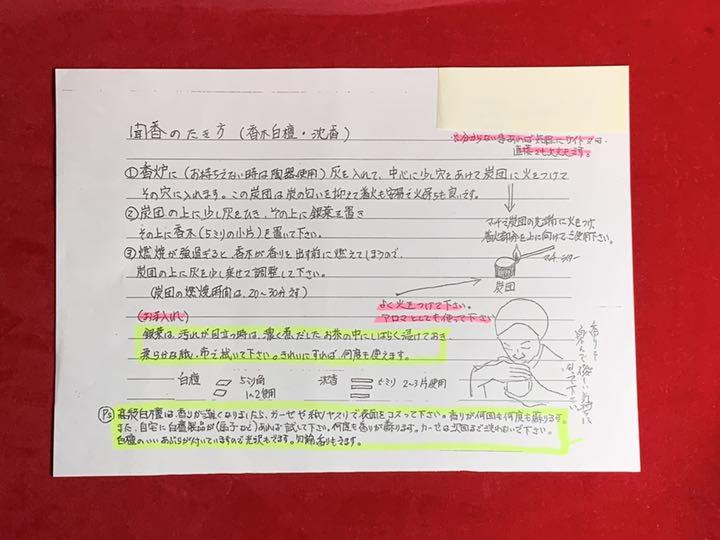 聞香のたき方 (香木白檀・沈香)
直接でも大丈夫です。
①香炉に (お持ちえない時は陶器使用) 灰を入れて、中心に少し穴をあけて炭団に火をつけて
その穴に入れます。この炭団は炭の匂いを抑えて着火も容易で火保ちも良いです。
②炭団の上に少し灰をひき、その上に銀葉を置き
その上に香木(5ミリの小片)を置いて下さい。
マッチで炭団の先端に火をつけ
着火部分を上に向けてご使用下さい。
③燃焼が強過ぎると、香木が香りを出す前に燃えてしまうので、
炭団の上に灰を少し乗せて調整して下さい。
(炭団の燃焼時間は、20~30分です)
炭団
よく火をつけて下さい。
アロマとしても使って下さい
(お手入れ)
銀葉は、汚れが目立つ時は、濃く煮だしたお茶の中にしばらく漬けておき
柔らかな紙、布で拭いて下さい。きれいにすれば、何度も使えます。
白檀 5ミリ角
1~2使用
沈香 5ミリ 2~3片使用
香りを
楽しんで優しい気持に
なって下さい
Ps 高級白檀は香りが薄くなりましたら、ガーゼや紙ヤスリで表面をコスって下さい。香りが何回も何度も蘇ります。
また、自宅に白檀製品が(扇子など)あれば試して下さい。何度も香りが蘇ります。ガーゼは次回まで洗わないで下さい。
白檀のいいあぶらが付いていますので光沢もでます。勿論香りもでます。